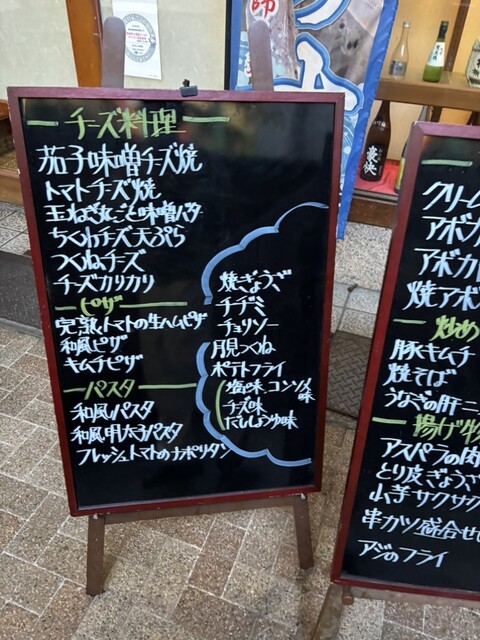 チーズ料理
茄子味噌チーズ焼
トマトチーズ焼
玉ねぎ丸ごと味噌バター
ちくわチーズ天ぷら
つくねチーズ
チーズカリカリ
ピザ
完熟トマトの生ハムピザ
和風ピザ
キムチピザ
パスタ
和風パスタ
和風明太子パスタ
フレッシュトマトのナポリタン
焼ぎょうざ
チヂミ
チョリソー
月見つくね
ポテトフライ
塩味、コンソメ味
チーズ味
だししょうゆ味
クリーム
アボカ
アボカド
焼アボ
炒め
豚キムチ
焼そば
うなぎの肝ニ
揚げ物
アスパラの肉
とり皮ぎょうざ
山芋サクサク
串カツ盛合せ
アジのフライ
豪快
師